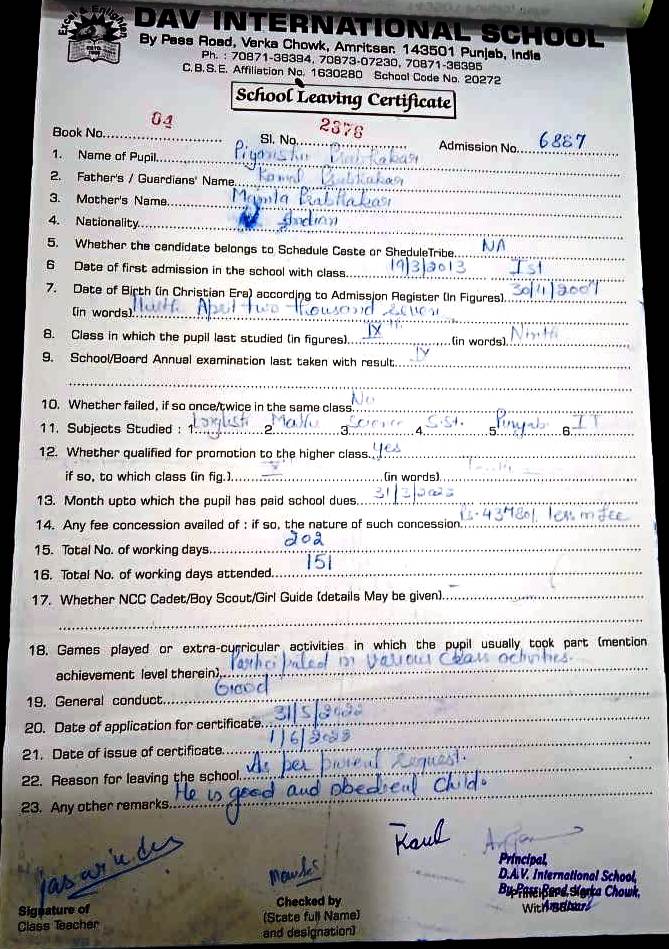 DAV INTERNATIONAL SCHOOL
By Pass Road, Varka Chowk, Amritsar. 143501 Punjab, India
Ph. : 70871-38394, 70873-07230, 70871-36395
C.B.S.E. Affiliation No. 1630280 School Code No. 20272
School Leaving Certificate
Book No. 04 Sl. No. 2378 Admission No. 6887
1. Name of Pupil Prabhakar
2. Father's / Guardians' Name Kamal Prabhakar
3. Mother's Name Mamta Prabhakar
4. Nationality Indian
5. Whether the candidate belongs to Schedule Caste or SheduleTribe. NA
6 Date of first admission in the school with class. 19/3/2013 Ist
7. Date of Birth (in Christian Era) according to Admission Register (In Figures) 30/4/2007
(in words) April two thousand seven
8. Class in which the pupil last studied (in figures) IX th (in words) Ninth
9. School/Board Annual examination last taken with result IX
10. Whether failed, if so once/twice in the same class No
11. Subjects Studied : 1. English 2. Maths 3. Science 4. S.St. 5. Punjabi 6. IT
12. Whether qualified for promotion to the higher class. yes
if so, to which class (in fig.) (in words)
13. Month upto which the pupil has paid school dues. 31/3/2022
14. Any fee concession availed of : if so, the nature of such concession. Rs. 43780/ less in fee
15. Total No. of working days 202
16. Total No. of working days attended 151
17. Whether NCC Cadet/Boy Scout/Girl Guide (details May be given) -
18. Games played or extra-curricular activities in which the pupil usually took part (mention
achievement level therein) Participated in various class activities.
19. General conduct Good
20. Date of application for certificate 31/5/2022
21. Date of issue of certificate 1/6/2022
22. Reason for leaving the school As per parent request.
23. Any other remarks He is good and obedient child.
Kaul
Principal,
D.A.V. International School,
By Pass Road, Verka Chowk,
Amritsar
Signature of
Class Teacher
Checked by
(State full Name)
and designation)